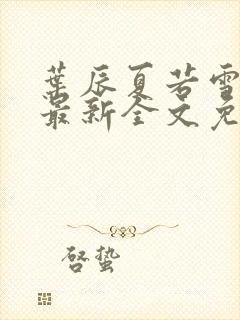 葉辰夏若雪
最新全文免
启蛰